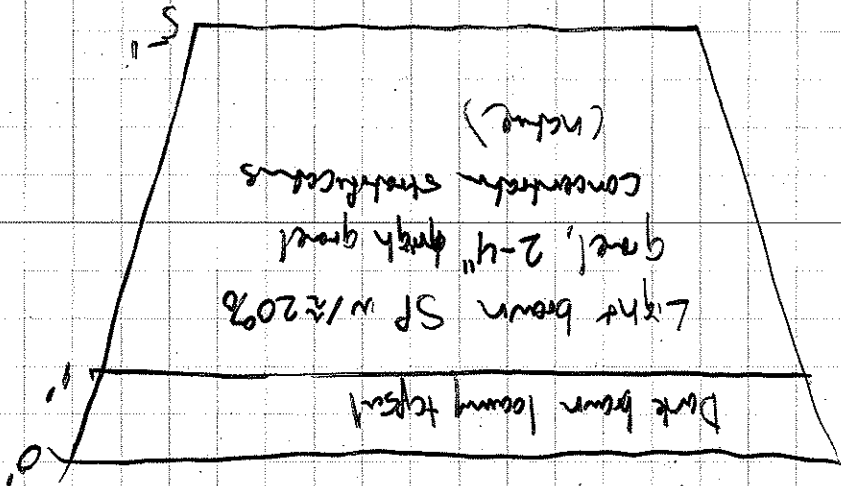 0'
Dark brown loamy topsoil
1'
Light brown SP w/≈20%
gravel, 2-4" high gravel
concentration stratifications
(native)
5"